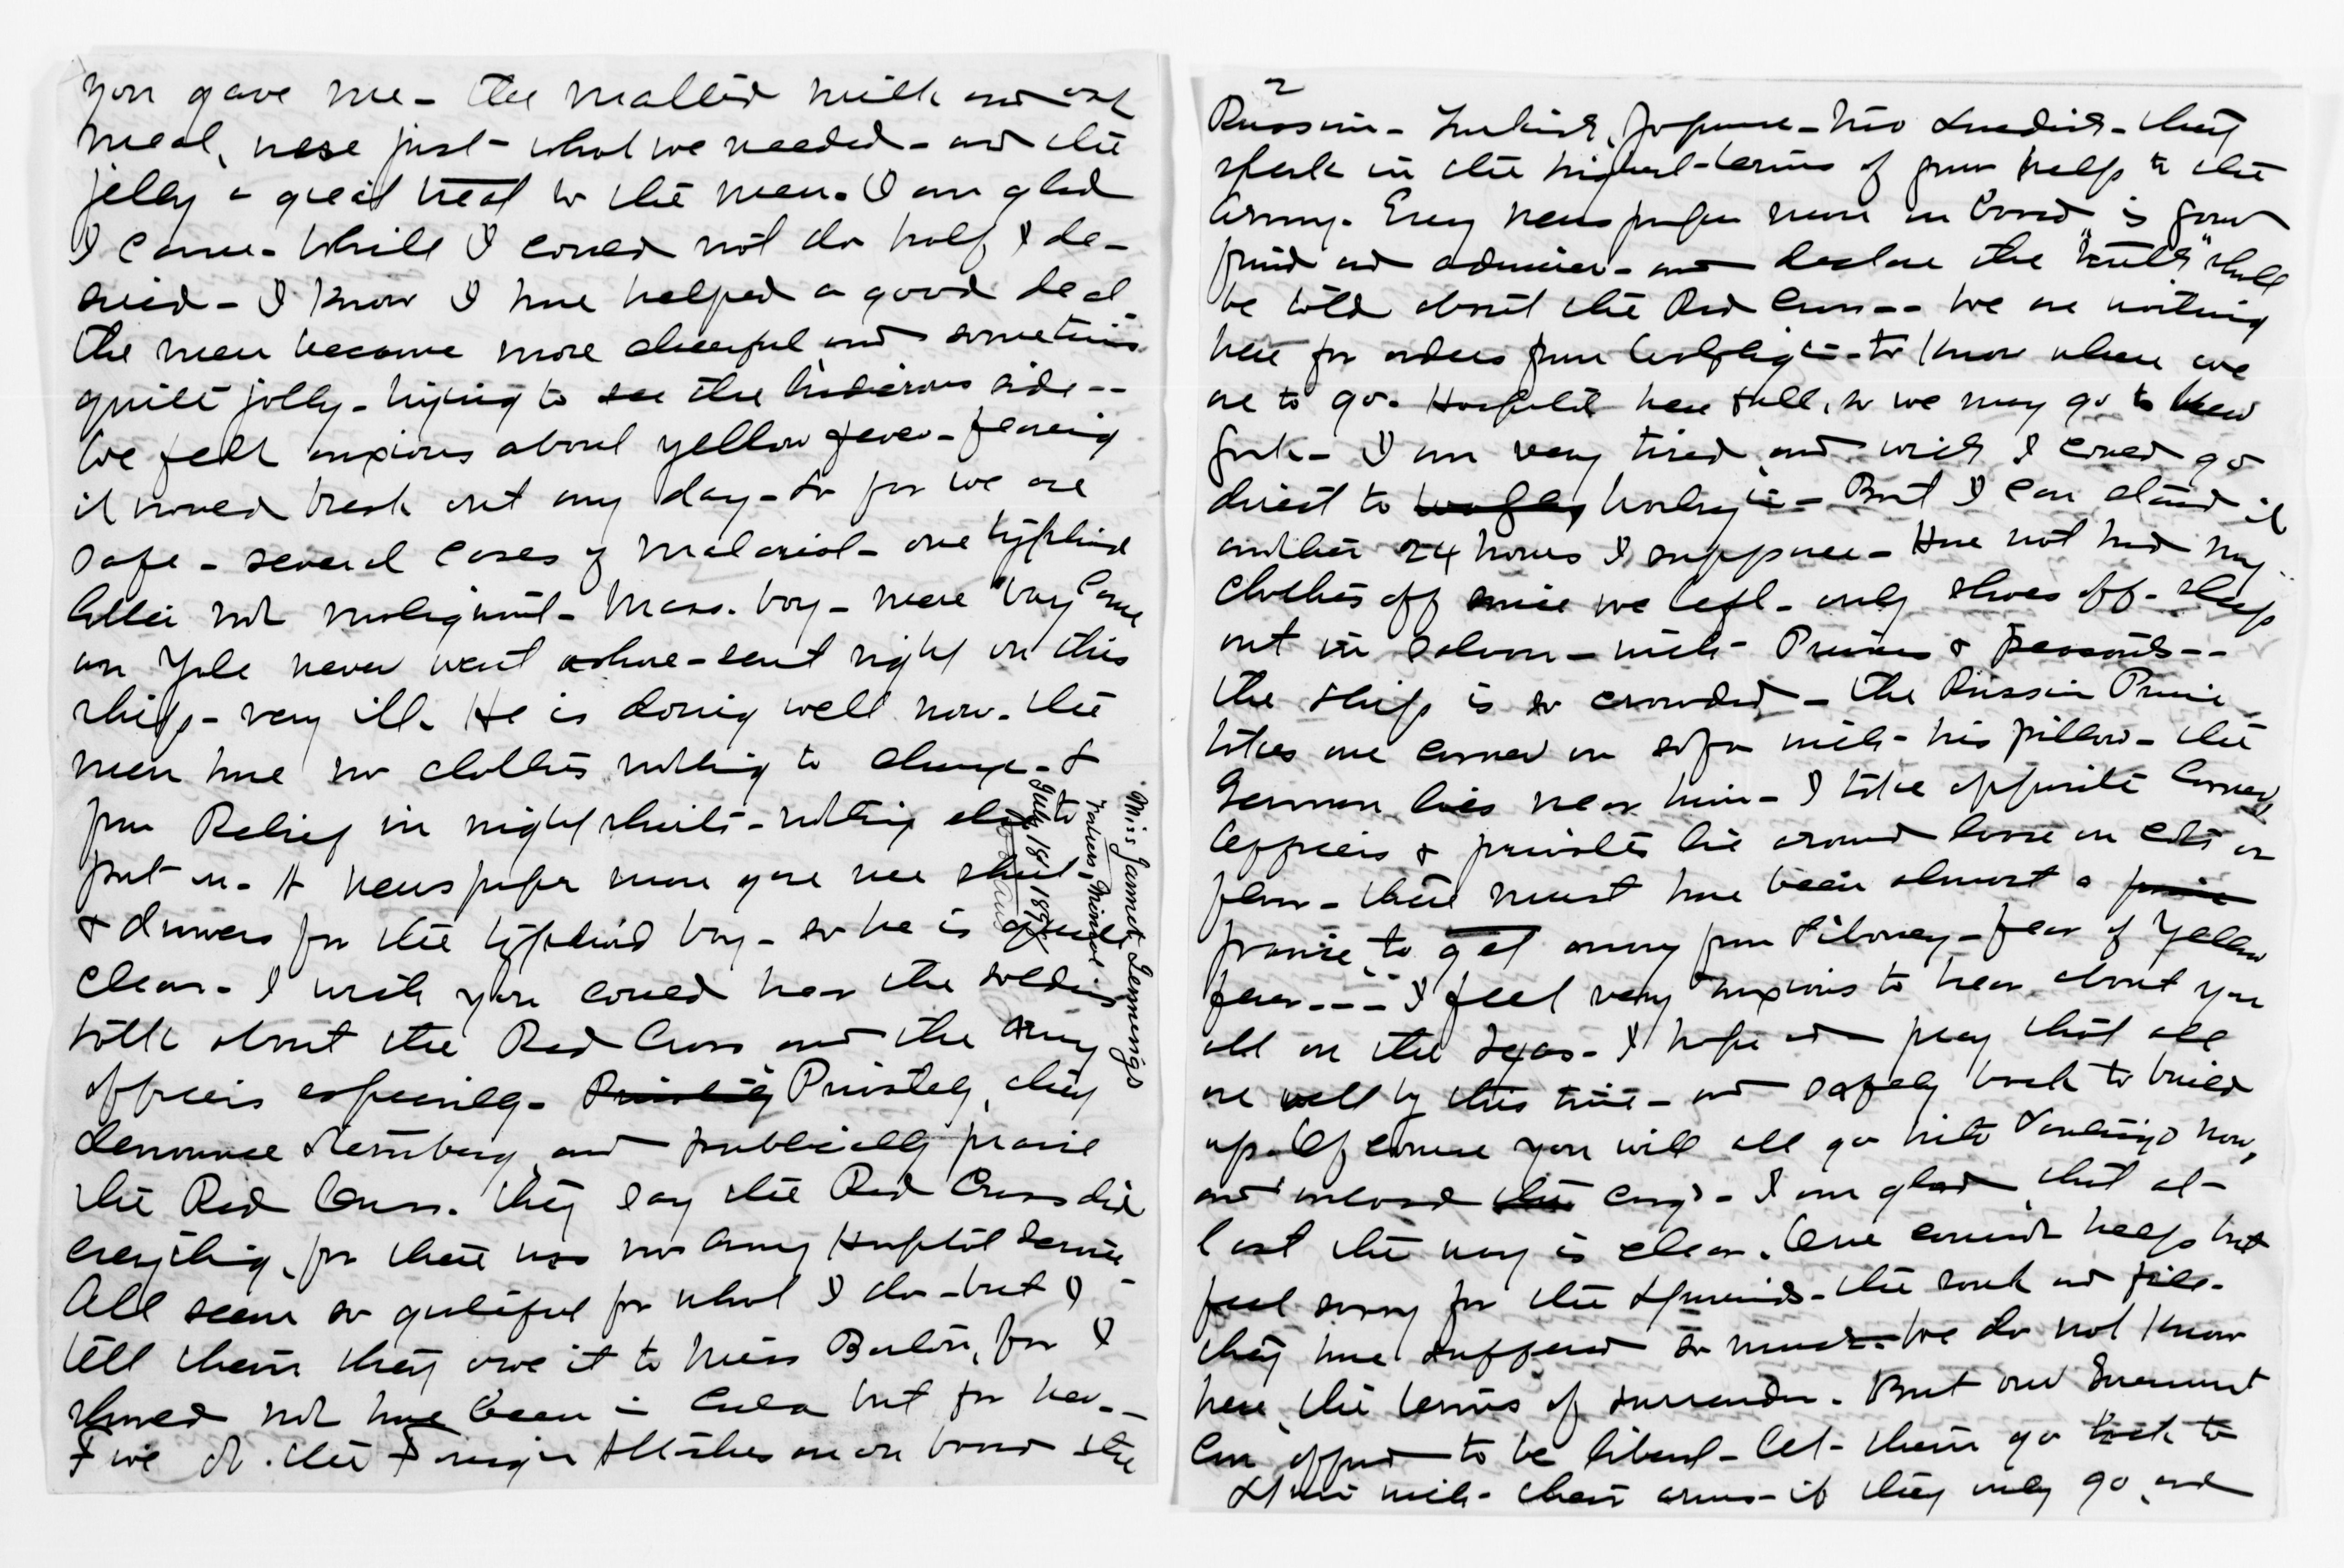 you gave me - the malted milk and oat
meal, were just - what we needed - and the
jelly a great treat to the men. I am glad
I came - While I could not do half I de-
sired - I know I have helped a good deal
the men become more cheerful and sometimes
quite jolly - trying to see the humorous side --
We felt anxious about yellow fever - fearing
it would break out any day - So far we are
safe - several cases of malarial - one typhoid
latter not malignant - Mass. boy - were boy came
on Yale never went ashore - sent right on this
ship - very ill. He is doing well now. the
men have no clothes nothing to change - &
from Relief in night shirts - nothing else to
put on - A newspaper man gave me shirt -
& drawers for the typhoid boy - so he is quite
clean - I wish you could hear the soldiers
talk about the Red Cross and the army
officers especially - Privately Privately, they
denounce Sternberg and publically praise
the Red Cross. They say the Red Cross did
everything, for there was no Army Hospital Service
All seem so grateful for what I do - but I
tell them they owe it to Miss Barton, for I
should not have been in Cuba but for her --
Five of the Foreign Attaches are on board the
Miss Jannet Jennings
Nurse
July 18 1898
2
Russian - Turkish, Japanese - two Swedish - they
speak in the highest terms of your help to the
Army. Every newspaper man on board is your
friend and admirer - and declare the "truth" shall
be told about the Red Cross -- We are waiting
here for orders from Washington - to know where we
are to go. Hospitals here full, so we may go to New
York - I am very tired and wish I could go
direct to Washington - But I can stand it
another 24 hours I suppose - Have not had my
clothes off since we left - only shoes off - sleep
out in saloon - with - Princes & peasants --
the ship is so crowded - the Russian Prince
takes one corner on sofa with - his pillow - the
German lies near him - I take opposite corner,
Officers & privates lie around loose on cots or
floor - there must have been almost a panic
panic to get away from Siboney - fear of Yellow
fever --- I feel very anxious to hear about you
all on the Texas - I hope and pray that all
are well by this time - and safely back to build
up. Of course you will all go into Santiago now,
and unload the cargo - I am glad that at -
last the way is clear. One cannot help but
feel sorry for the Spaniards - the rank and file -
they have suffered so much - We do not know
here, the terms of surrender. But our Government
can afford to be liberal - Let - them go back to
Spain with - their arms - if they only go and